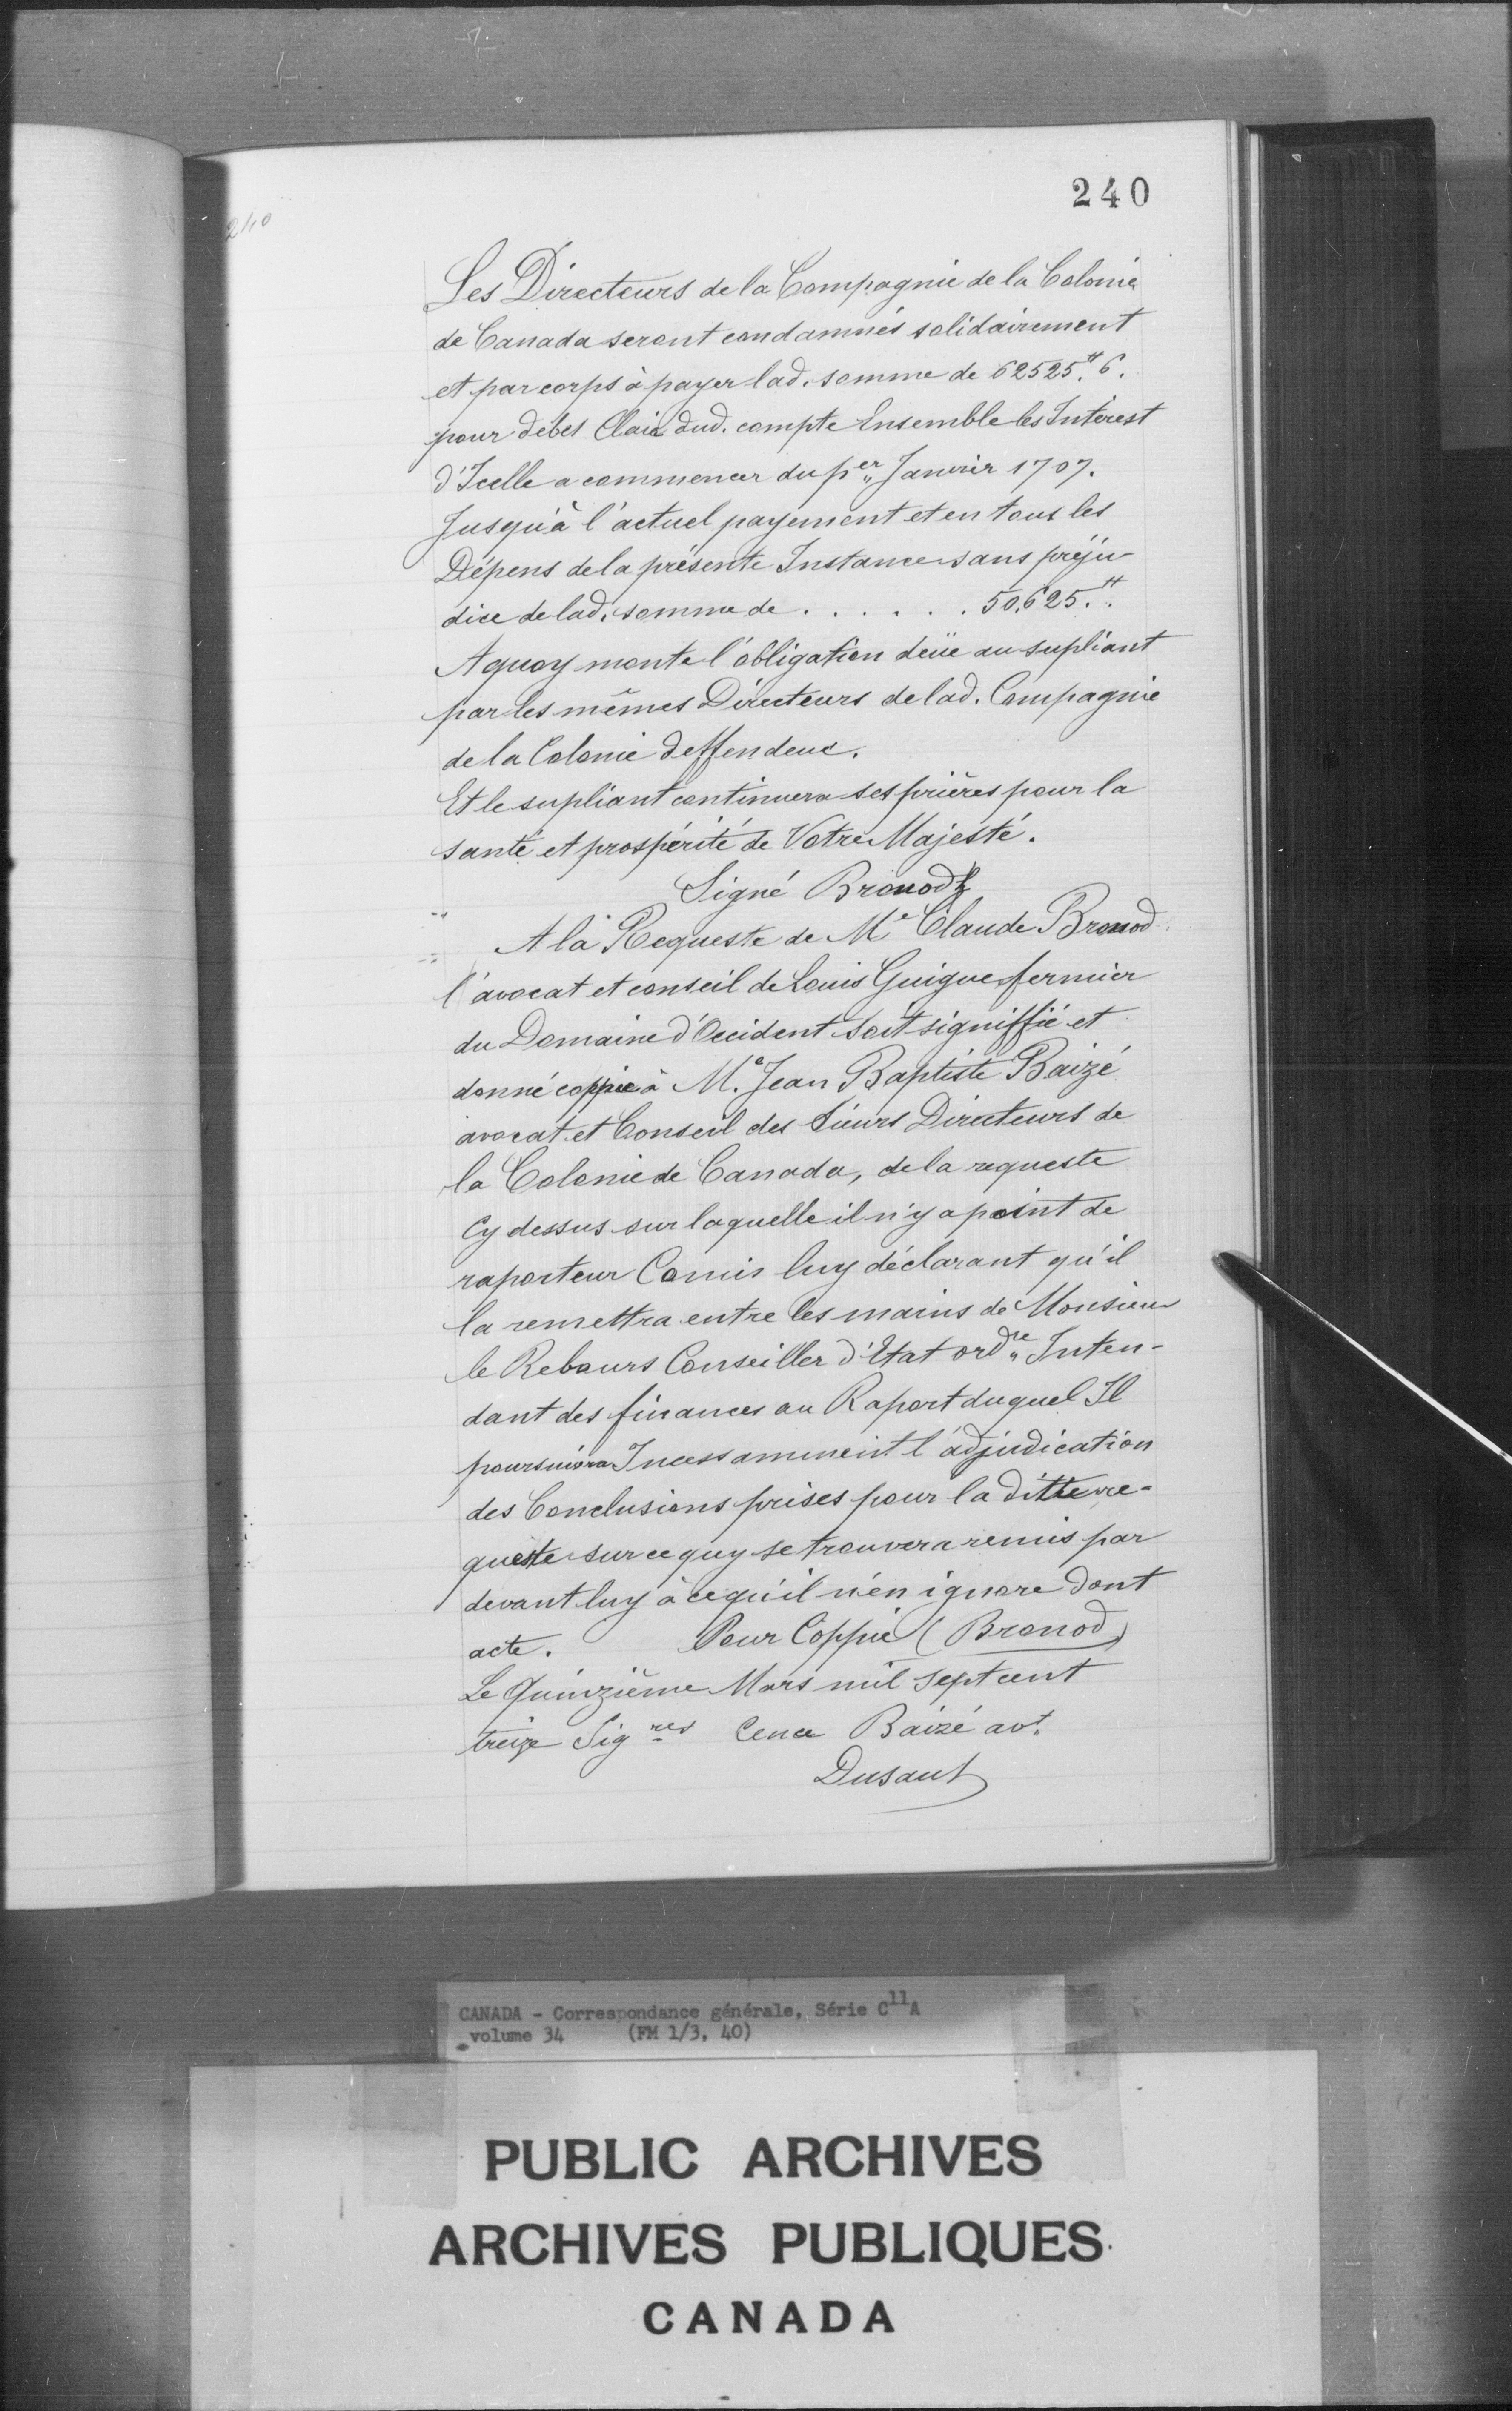 240
240
Les Directeurs de la Compagnie de la Colonie
de Canada seront condamnés solidairement
et par corps à payer lad. somme de 62525.# 6.
pour débet Clair dud. compte Ensemble les Intérest
d'Icelle a commencer du per Janvier 1707.
Jusqu'à l'actuel payement et en tous les
Dépens de la présente Instance sans préju-
dice de lad. somme de . . . . . . 50,625.#
A quoy monte l'obligation deüe au supliant
par les mêmes Directeurs de lad. Compagnie
de la Colonie deffendeur.
Et le supliant continuera ses prières pour la
santé et prospérité de Votre Majesté.
Signé Bronod
A la Requeste de Me Claude Bronod
l'avocat et conseil de Louis Guigue fermier
du Domaine d'Occident soit signiffié et
donné coppie à Me. Jean Baptiste Baizé
avocat et Conseil des Sieurs Directeurs de
la Colonie de Canada, de la requeste
Cy dessus sur laquelle il n'y a point de
raporteur Comis luy déclarant qu'il
la remettra entre les mains de Monsieur
le Rebours Conseiller d'Etat ordre Inten-
dant des finances au Raport duquel Il
poursuivra Incessamment l'adjudication
des Conclusions prises pour la ditte re-
queste sur ce quy se trouvera remis par
devant luy à ce qu'il n'en ignore dont
acte. Pour Coppie (Bronod)
Le Quinzième Mars mil sept cent
treize Sig res Baizé avt.
Dusaut
CANADA - Correspondance générale, Série C11A
volume 34 (FM 1/3, 40)
PUBLIC ARCHIVES
ARCHIVES PUBLIQUES
CANADA